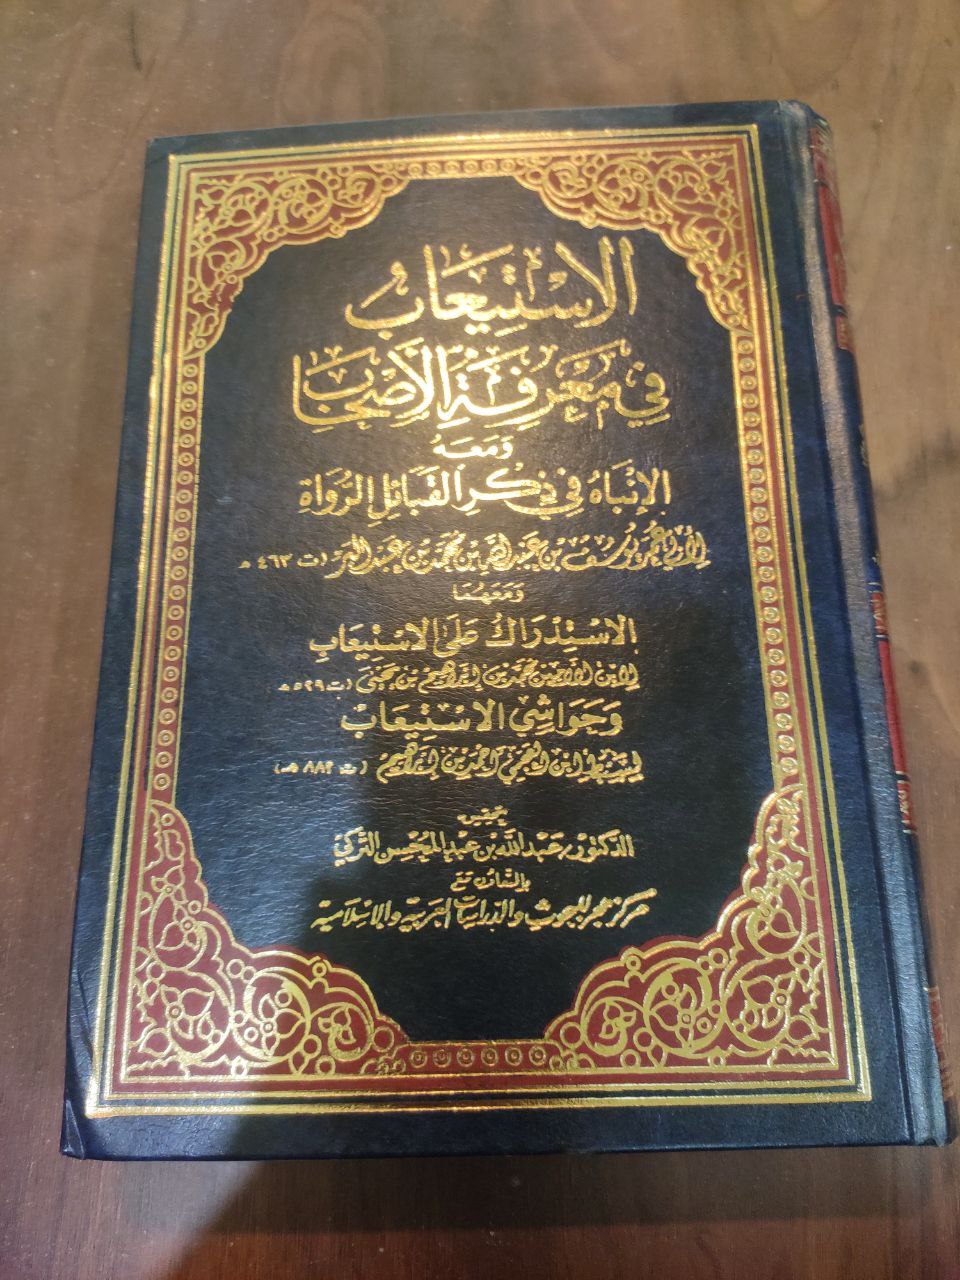 الاستيعاب
في معرفة الأصحاب
ومعه
الإنباه في ذكر القبائل الرواة
لأبي عمر يوسف بن عبد الله بن محمد بن عبد البر (ت ٤٦٣ هـ
ومعهما
الاستدراك على الاستيعاب
لابن الأمين محمد بن إبراهيم بن يحيى (ت ٥٢٩ هـ
وحواشي الاستيعاب
لسبط ابن العجمي أحمد بن إبراهيم (ت ٨٨٤ هـ)
تحقيق
الدكتور عبد الله بن عبد المحسن التركي
بالتعاون مع
مركز هجر للبحوث والدراسات العربية والإسلامية